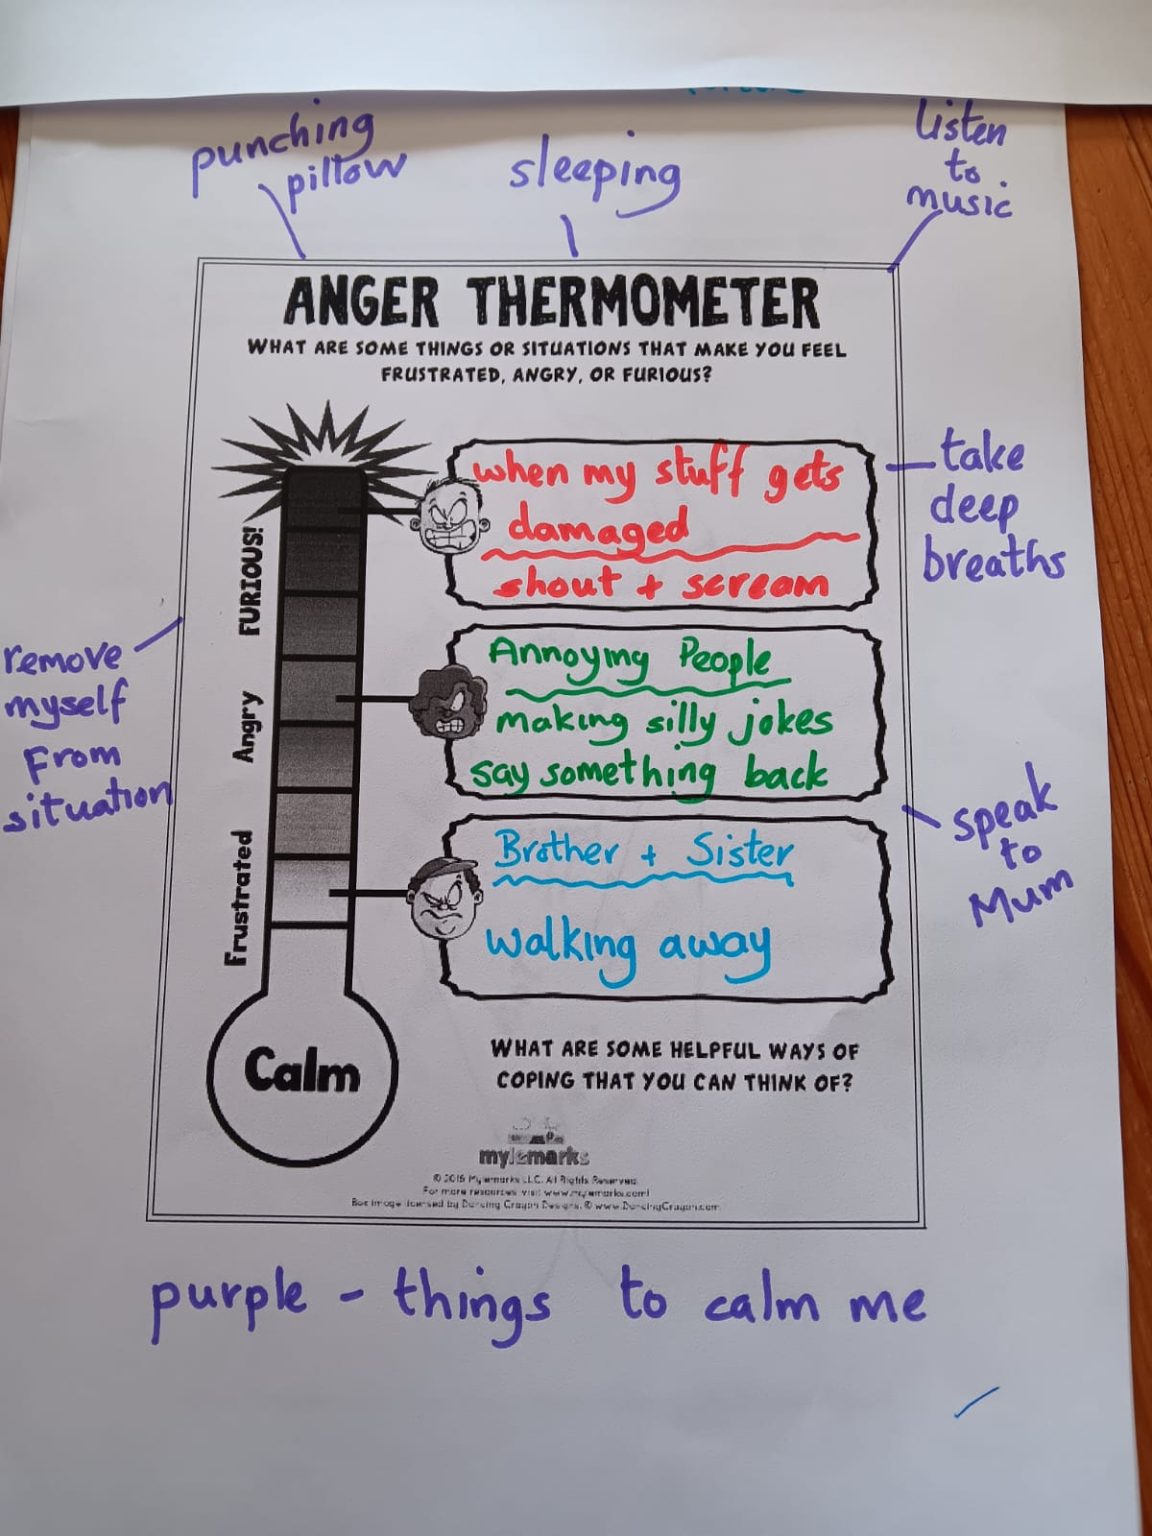 punching
pillow
sleeping
listen
to
music
ANGER THERMOMETER
WHAT ARE SOME THINGS OR SITUATIONS THAT MAKE YOU FEEL
FRUSTRATED, ANGRY, OR FURIOUS?
FURIOUS!
Angry
Frustrated
Calm
when my stuff gets
damaged
shout + scream
Annoying People
making silly jokes
say something back
Brother + Sister
walking away
take
deep
breaths
remove
myself
From
situation
speak
to
Mum
WHAT ARE SOME HELPFUL WAYS OF
COPING THAT YOU CAN THINK OF?
mylemarks
Mylemarks LLC. All Rights Reserved.
For more resources, visit www.mylemarks.com!
Box image licensed by Dancing Crayon Designs. © www.DancingCrayon.com
purple - things to calm me